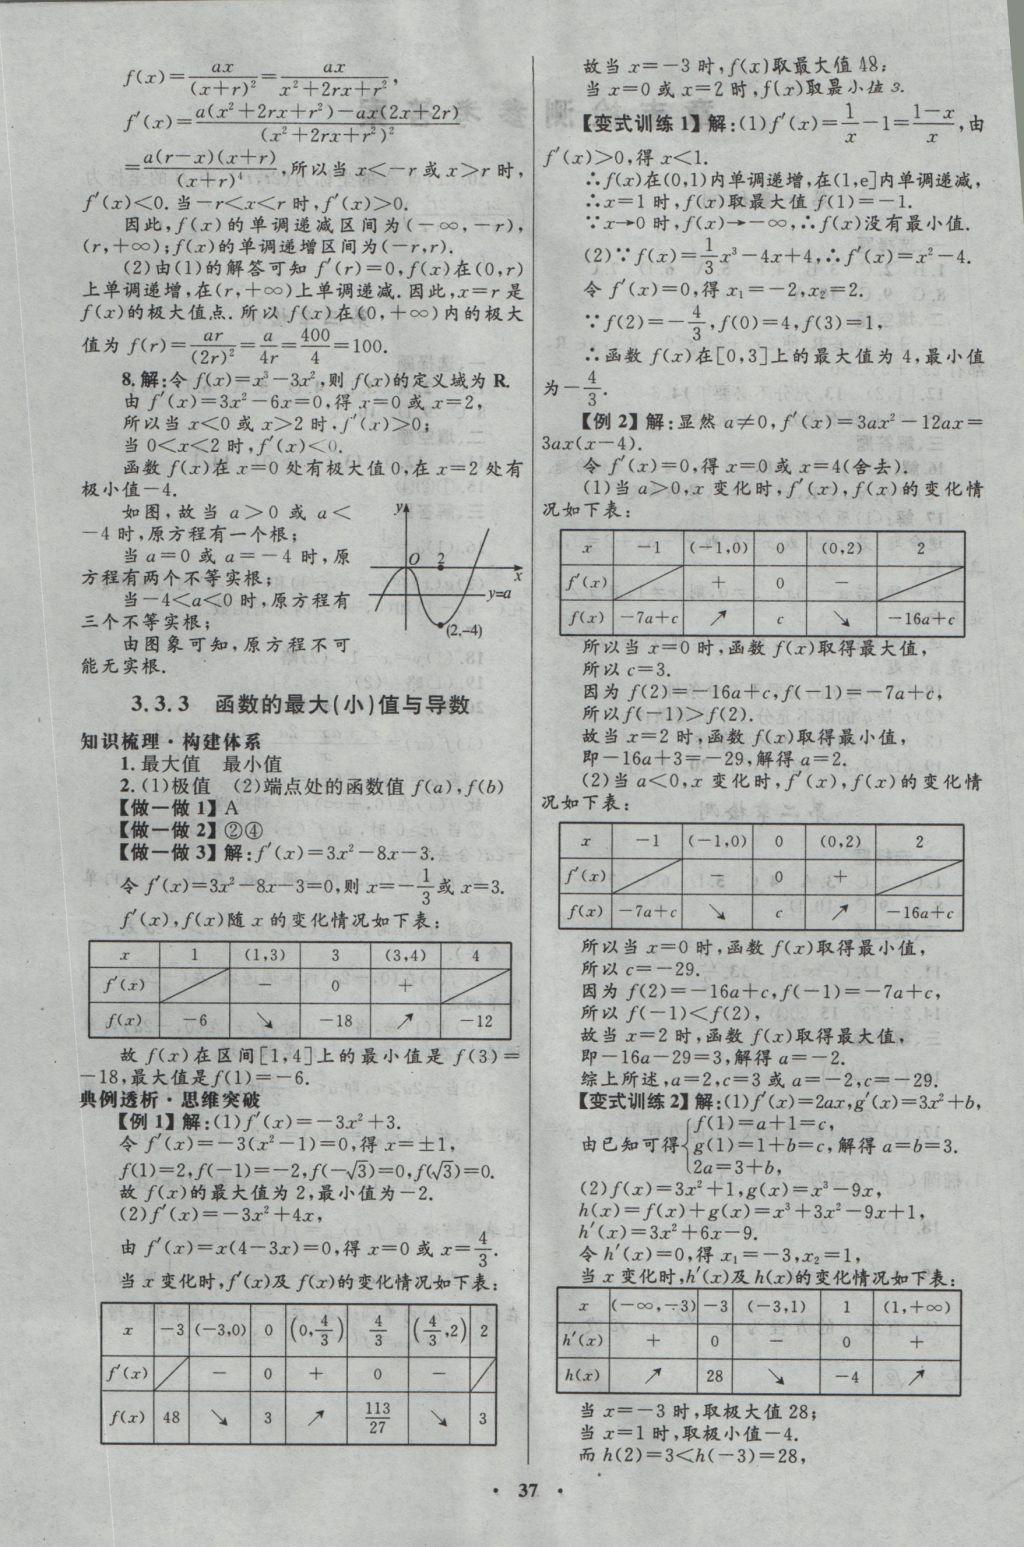 f(x)=ax/(x+r)²=ax/(x²+2rx+r²),
f′(x)=[a(x²+2rx+r²)-ax(2x+2r)]/(x²+2rx+r²)²
=a(r-x)(x+r)/(x+r)⁴,所以当 x<-r或 x>r 时,
f′(x)<0.当-r<x<r 时,f′(x)>0.
因此,f(x)的单调递减区间为(-∞,-r),
(r,+∞);f(x)的单调递增区间为(-r,r).
(2)由(1)的解答可知 f′(r)=0,f(x)在(0,r)
上单调递增,在(r,+∞)上单调递减.因此,x=r 是
f(x)的极大值点.所以 f(x)在(0,+∞)内的极大
值为 f(r)=ar/(2r)²=a/4r=400/4=100.
8.解:令 f(x)=x³-3x²,则 f(x)的定义域为 R.
由 f′(x)=3x²-6x=0,得 x=0 或 x=2,
所以当 x<0 或 x>2 时,f′(x)>0;
当 0<x<2 时,f′(x)<0.
函数 f(x)在 x=0 处有极大值0,在 x=2 处有
极小值-4.
如图,故当 a>0 或 a<
-4时,原方程有一个根;
当 a=0 或 a=-4 时,原
方程有两个不等实根;
当-4<a<0时,原方程有
三个不等实根;
由图象可知,原方程不可
能无实根.
y
O 2
x
y=a
(2,-4)
3.3.3 函数的最大(小)值与导数
知识梳理·构建体系
1.最大值 最小值
2.(1)极值 (2)端点处的函数值 f(a),f(b)
【做一做 1】A
【做一做 2】②④
【做一做 3】解:f′(x)=3x²-8x-3.
令 f′(x)=3x²-8x-3=0,则 x=-1/3或 x=3.
f′(x),f(x)随 x 的变化情况如下表:
x 1 (1,3) 3 (3,4) 4
f′(x) - 0 +
f(x) -6 ↘ -18 ↗ -12
故 f(x)在区间[1,4]上的最小值是 f(3)=
-18,最大值是f(1)=-6.
典例透析·思维突破
【例 1】解:(1)f′(x)=-3x²+3.
令 f′(x)=-3(x²-1)=0,得 x=±1,
f(1)=2,f(-1)=-2,f(-√3)=0,f(√3)=0.
故 f(x)的最大值为 2,最小值为-2.
(2)f′(x)=-3x²+4x,
由 f′(x)=x(4-3x)=0,得 x=0 或 x=4/3.
当 x 变化时,f′(x)及 f(x)的变化情况如下表:
x -3 (-3,0) 0 (0,4/3) 4/3 (4/3,2) 2
f′(x) - 0 + 0 -
f(x) 48 ↘ 3 ↗ 113/27 ↘ 3
故当 x=-3 时,f(x)取最大值 48;
当 x=0 或 x=2 时,f(x)取最小值 3.
【变式训练 1】解:(1)f′(x)=1/x-1=(1-x)/x,由
f′(x)>0,得 x<1.
∴f(x)在(0,1)内单调递增,在(1,e]内单调递减,
∴x=1 时,f(x)取最大值 f(1)=-1.
∵x→0 时,f(x)→-∞,∴f(x)没有最小值.
(2)∵f(x)=1/3x³-4x+4,∴f′(x)=x²-4.
令 f′(x)=0,得 x₁=-2,x₂=2.
∵f(2)=-4/3,f(0)=4,f(3)=1,
∴函数 f(x)在[0,3]上的最大值为 4,最小值
为-4/3.
【例 2】解:显然 a≠0,f′(x)=3ax²-12ax=
3ax(x-4).
令 f′(x)=0,得 x=0 或 x=4(舍去).
(1)当 a>0,x 变化时,f′(x),f(x)的变化情
况如下表:
x -1 (-1,0) 0 (0,2) 2
f′(x) + 0 -
f(x) -7a+c ↗ c ↘ -16a+c
所以当 x=0 时,函数 f(x)取得最大值,
所以 c=3.
因为 f(2)=-16a+c,f(-1)=-7a+c,
所以f(-1)>f(2).
故当 x=2 时,函数 f(x)取得最小值,
即-16a+3=-29,解得 a=2.
(2)当 a<0,x 变化时,f′(x),f(x)的变化情
况如下表:
x -1 (-1,0) 0 (0,2) 2
f′(x) - 0 +
f(x) -7a+c ↘ c ↗ -16a+c
所以当 x=0 时,函数 f(x)取得最小值,
所以 c=-29.
因为 f(2)=-16a+c,f(-1)=-7a+c,
所以 f(-1)<f(2),
故当 x=2 时,函数 f(x)取得最大值,
即-16a-29=3,解得 a=-2.
综上所述,a=2,c=3 或 a=-2,c=-29.
【变式训练 2】解:(1)f′(x)=2ax,g′(x)=3x²+b,
由已知可得{f(1)=a+1=c,
g(1)=1+b=c,解得 a=b=3.
2a=3+b,
(2)f(x)=3x²+1,g(x)=x³-9x,
h(x)=f(x)+g(x)=x³+3x²-9x+1,
h′(x)=3x²+6x-9.
令 h′(x)=0,得 x₁=-3,x₂=1,
当 x 变化时,h′(x)及h(x)的变化情况如下表:
x (-∞,-3) -3 (-3,1) 1 (1,+∞)
h′(x) + 0 - 0 +
h(x) ↗ 28 ↘ -4 ↗
当 x=-3 时,取极大值 28;
当 x=1 时,取极小值-4.
而 h(2)=3<h(-3)=28,
· 37 ·